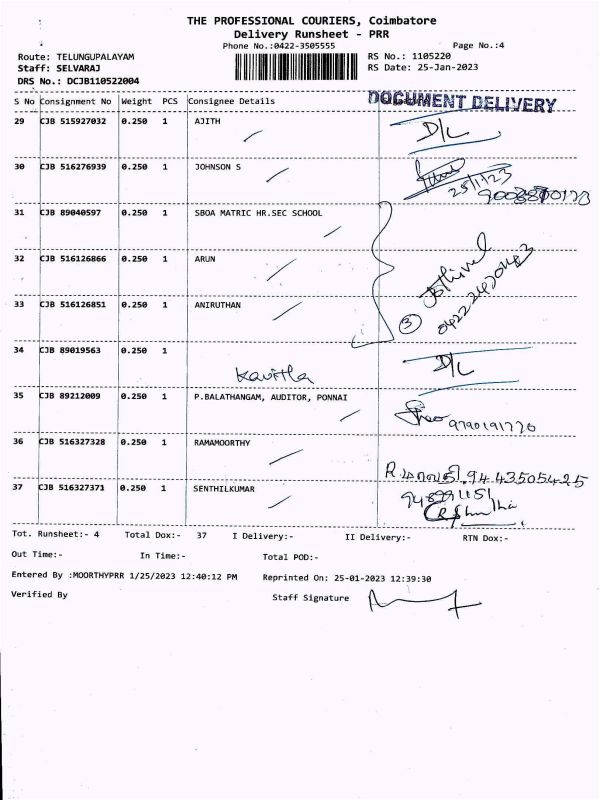 THE PROFESSIONAL COURIERS, Coimbatore
Delivery Runsheet - PRR
Phone No.:0422-3505555 Page No.:4
Route: TELUNGUPALAYAM RS No.: 1105220
Staff: SELVARAJ RS Date: 25-Jan-2023
DRS No.: DCJB110522004
S No Consignment No Weight PCS Consignee Details DOCUMENT DELIVERY
29 CJB 515927032 0.250 1 AJITH D/L
30 CJB 516276939 0.250 1 JOHNSON S
25/1/23
31 CJB 89040597 0.250 1 SBOA MATRIC HR.SEC SCHOOL
32 CJB 516126866 0.250 1 ARUN
33 CJB 516126851 0.250 1 ANIRUTHAN
3
34 CJB 89019563 0.250 1 D/L
Kavitha
35 CJB 89212009 0.250 1 P.BALATHANGAM, AUDITOR, PONNAI
9790191770
36 CJB 516327328 0.250 1 RAMAMOORTHY
R. மாலதி. 94 43505425
37 CJB 516327371 0.250 1 SENTHILKUMAR
Tot. Runsheet:- 4 Total Dox:- 37 I Delivery:- II Delivery:- RTN Dox:-
Out Time:- In Time:- Total POD:-
Entered By :MOORTHYPRR 1/25/2023 12:40:12 PM Reprinted On: 25-01-2023 12:39:30
Verified By Staff Signature